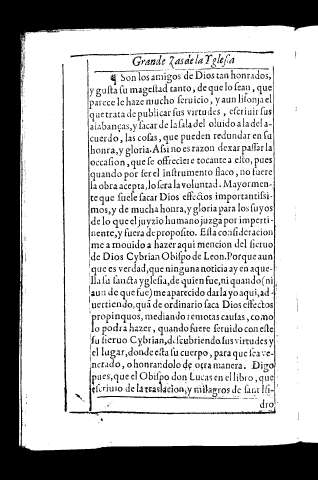 Grandezas de la Yglesia
¶ Son los amigos de Dios tan honrados,
y gusta su magestad tanto, de que lo sean, que
parece le haze mucho seruicio, y aun lisonja el
que trata de publicar sus virtudes, escriuir sus
alabanças, y sacar de la sala del oluido a la del a-
cuerdo, las cosas, que pueden redundar en su
honra, y gloria. Assi no es razon dexar passar la
occasion, que se offreciere tocante a esto, pues
quando por ser el instrumento flaco, no fuere
la obra acepta, lo sera la voluntad. Mayormen-
te que suele sacar Dios effectos importantissi-
mos, y de mucha honra, y gloria para los suyos
de lo que el juyzio humano juzga por imperti-
nente, y fuera de proposito. Esta consideracion
me a mouido a hazer aqui mencion del sieruo
de Dios Cybrian Obispo de Leon. Porque aun
que es verdad, que ninguna noticia ay en aque-
lla su sancta yglesia, de quien fue, ni quando (ni
aun de que fue) me a parecido darla yo aqui, ad-
uertiendo, quā de ordinario saca Dios effectos
propinquos, mediando remotas causas, como
lo podra hazer, quando fuere seruido con este
su sieruo Cybrian, descubriendo sus virtudes y
el lugar, donde esta su cuerpo, para que sea ve-
nerado, o honrandolo de otra manera. Digo
pues, que el Obispo don Lucas en el libro, que
escriuio de la traslacion, y milagros de sant Isi-
dro